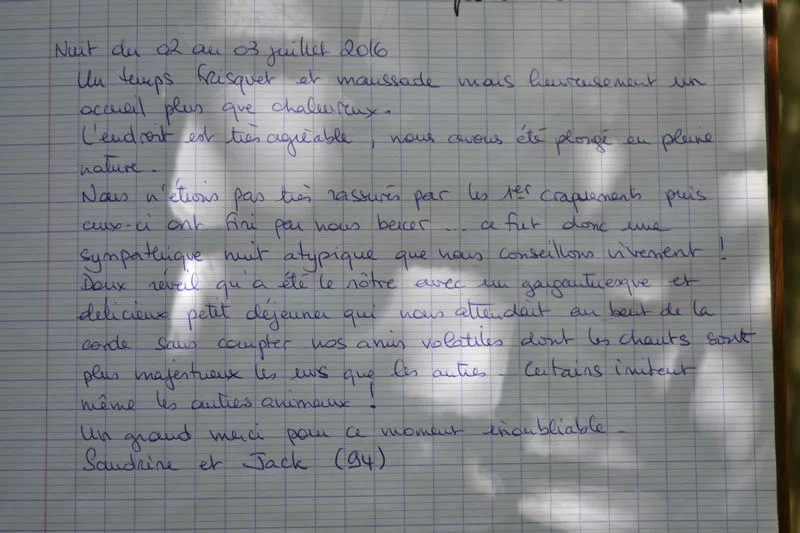 Nuit du 02 au 03 juillet 2016
Un temps frisquet et maussade mais heureusement un
accueil plus que chaleureux.
L'endroit est très agréable, nous avons été plongé en pleine
nature.
Nous n'étions pas très rassurés par les 1er craquements puis
ceux-ci ont fini par nous bercer... ce fut donc une
sympathique nuit atypique que nous conseillons vivement !
Doux réveil qu'a été le nôtre avec un gargantuesque et
délicieux petit déjeuner qui nous attendait au bout de la
corde sans compter nos amis volatiles dont les chants sont
plus majestueux les uns que les autres. Certains imitent
même les autres animaux !
Un grand merci pour ce moment inoubliable.
Sandrine et Jack (94)